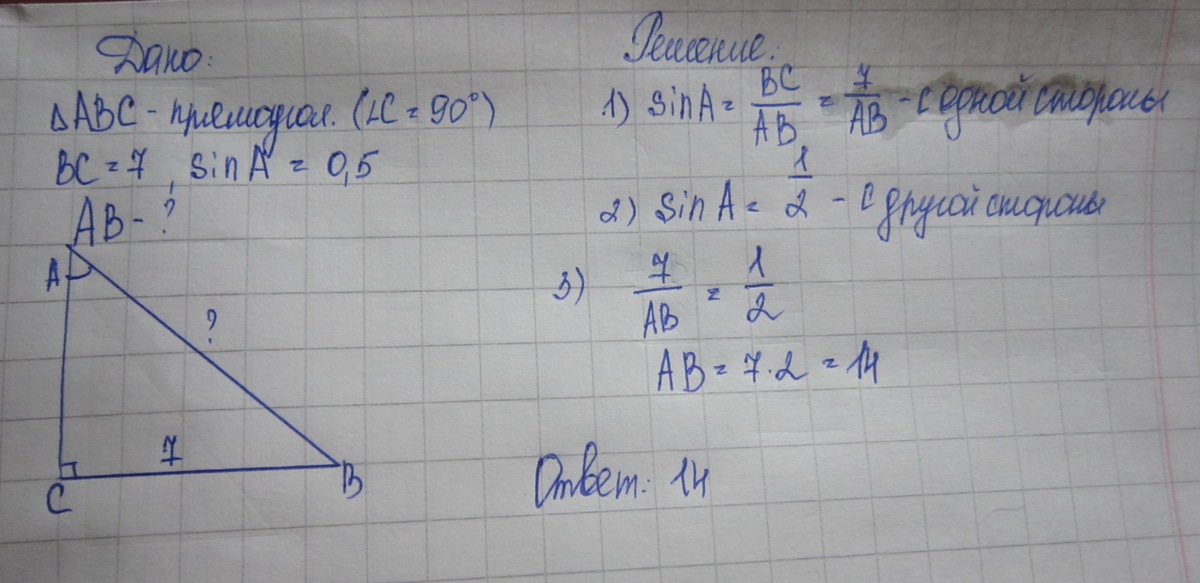 Дано:
△ABC - прямоугол. (∠C = 90°)
BC = 7, sin A = 0,5
AB - ?
A
?
7
C
B
Решение:
1) sin A = BC/AB = 7/AB - с одной стороны
2) sin A = 1/2 - с другой стороны
3) 7/AB = 1/2
AB = 7·2 = 14
Ответ: 14